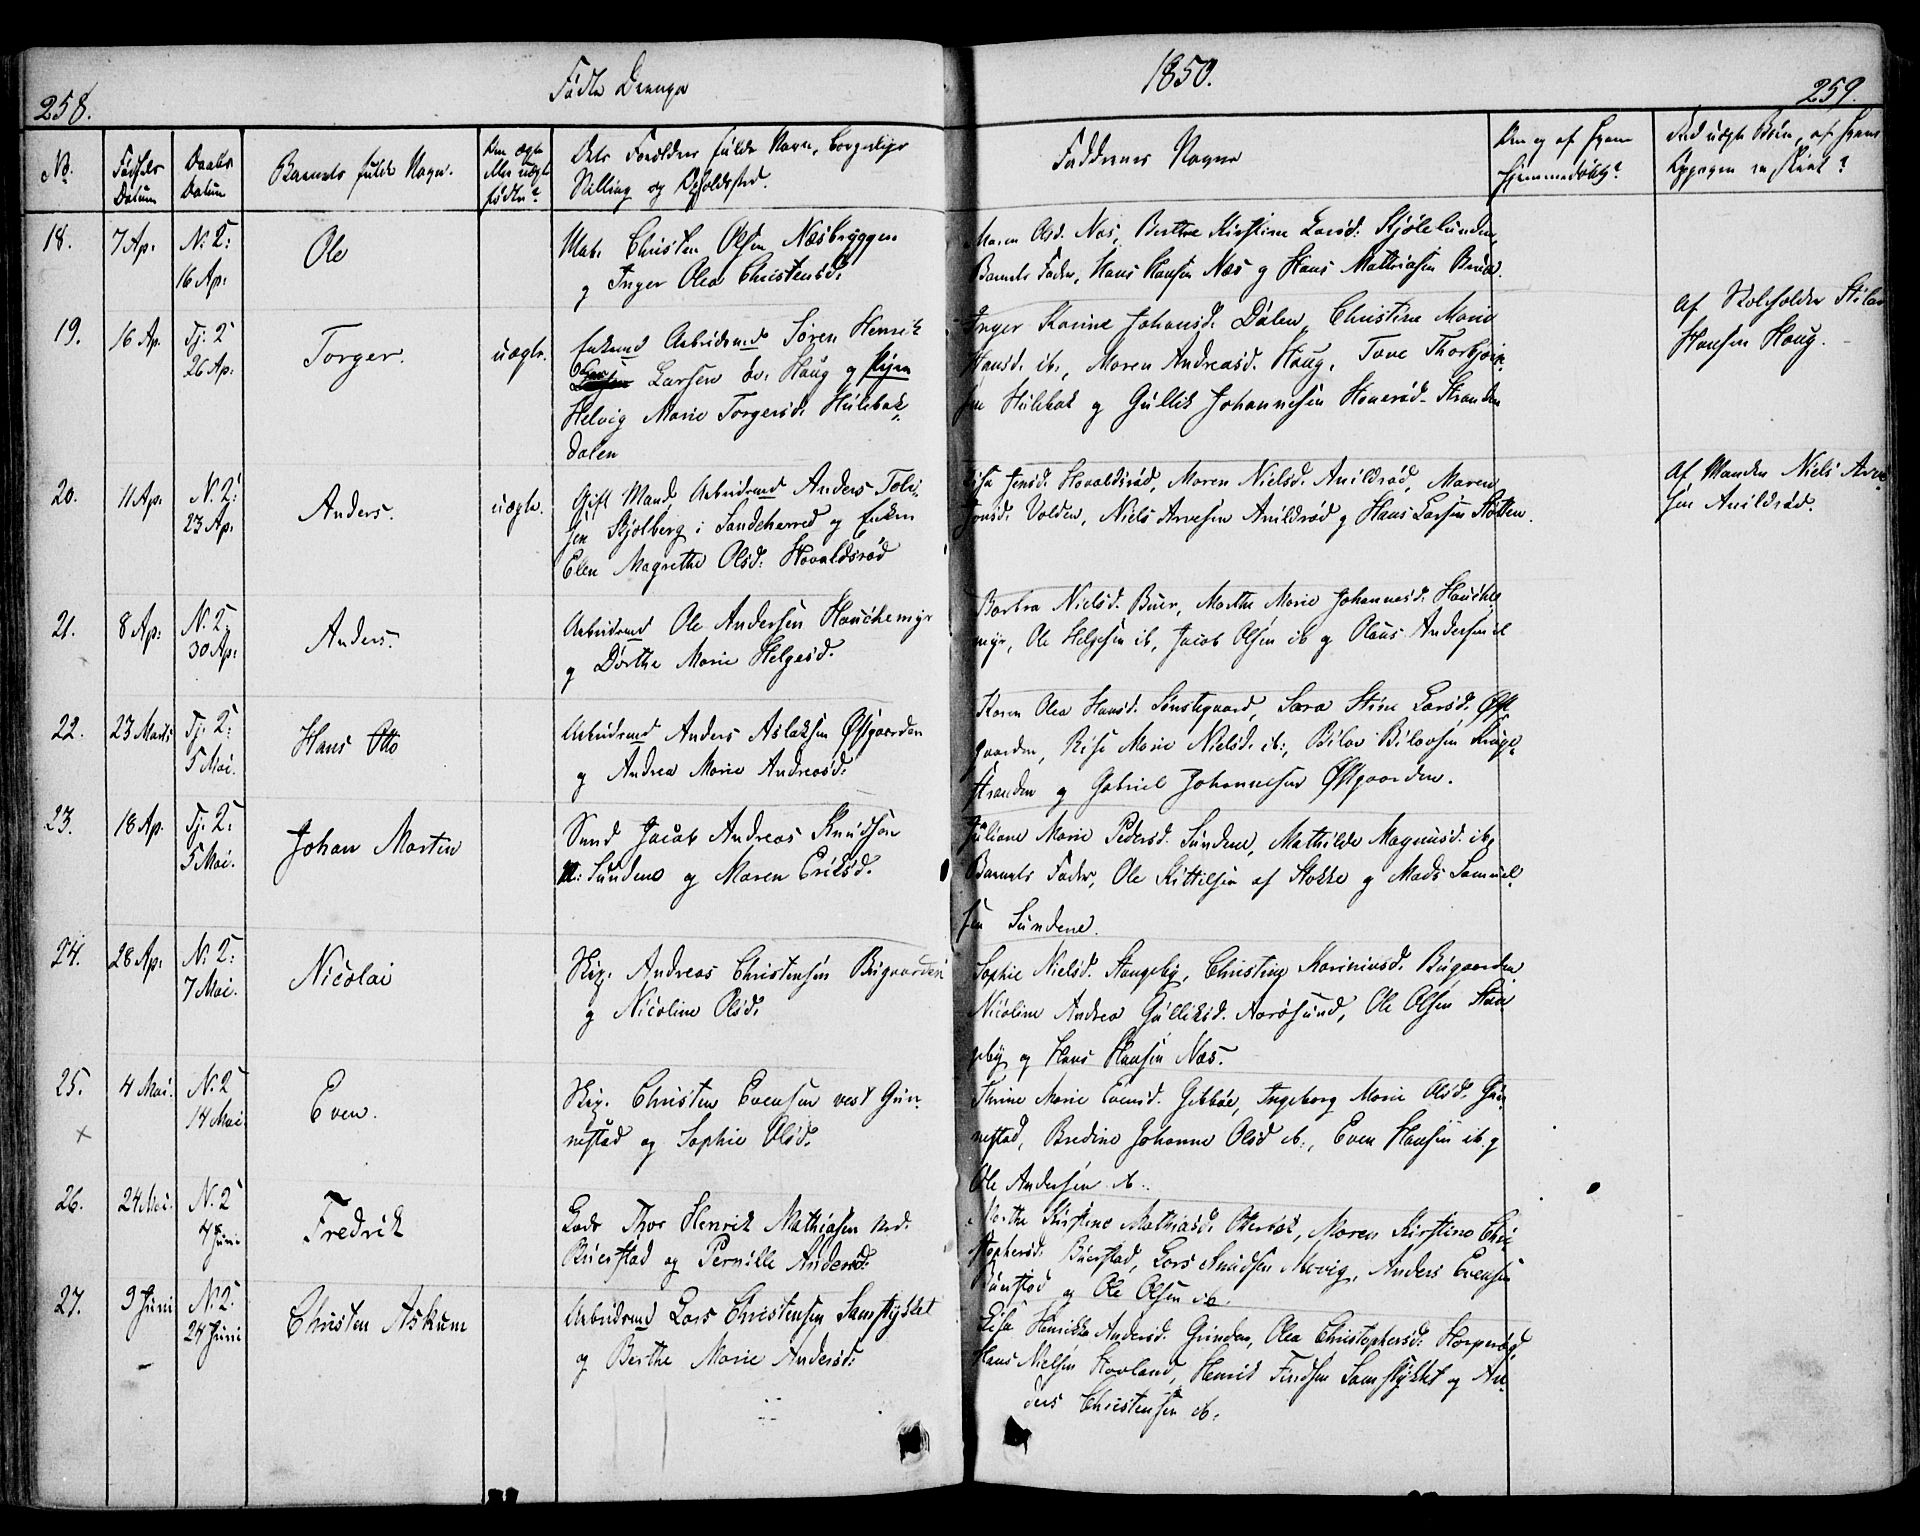 258.
Fødte Drenge
1850.
259.
No.
Fødsels
Datum
Daabs
Datum
Barnets fulde Navn.
Om ægte
eller uægte
fødte?
Dets Forældres fulde Navn, borgerlige
Stilling og Opholdsted.
Faddernes Navne
Om og af hvem
hjemmedøbt?
Ved uægte Børn, af hvem
Opgaven er skeet?
18.
7 Ap:
N: 2:
16 Ap:
Ole
Mat. Christen Olsen Næsbryggen
og Inger Olea Christensd:
Maren Olsd. Næs, Berthe Kirstine Larsd: Skjølelunden,
Barnets Fader, Hans Hansen Næs og Hans Mathiasen
19.
16 Ap.
Tj: 2
26 Ap:
Torger.
uægte.
Enkemd Arbeidsmd Søren Henrik
Larsen Haug og Pigen
Helvig Marie Torgersd: Hulebak-
dalen
Inger Karine Johansd: Dalen, Christine Marie
Hansd. ib., Maren Andreasd. Haug, Tove Thorbjørn-
sen Hulebak og Gullik Johannesen Stranden
af Skoleholder
Hansen Haug.
20.
11 Ap.
N: 2:
23 Ap.
Anders.
uægte.
Gift Mand Arbeidsmd Anders
sen Skjolberg i Sandeherred og Enken
Elen Magrethe Olsd: Hovaldsrød
Jensd: Hovaldsrød, Maren Nielsd. Arildsrød, Maren
Volden, Niels Arvesen Arildsrød og Hans Larsen
af Manden Niels Arve-
sen Arildsrød.
21.
8 Ap:
N: 2:
30 Ap:
Anders.
Arbeidsmd Ole Andersen Hauchemyr
og Dorthe Marie Helgesd.
Barbra Nielsd. Buer, Marthe Marie Johannesd. Hauche-
myr, Ole Helgesen ib, Jacob Olsen ib og Olaus Andersen
22.
23 Marts
Tj: 2:
5 Mai.
Hans Otto
Arbeidsmd Anders Aslaksen Østgaarden
og Andrea Marie Andreasd:
Karen Olea Hansd. Sønstegaard, Sara Stine Larsd. Øst-
gaarden, Marie Nielsd. ib:,
stranden og Gabriel Johannesen Østgaarden.
23.
18 Ap.
Tj: 2:
5 Mai.
Johan Martin
Smd Jacob Andreas Knudsen
N: Sundene og Maren Eriksd.
Juliane Marie Pedersd. Sundene, Mathilde Magnusd. ib,
Barnets Fader, Ole Kittilsen af Stokke og Mads Samuel-
sen Sundene.
24.
28 Ap:
N: 2:
7 Mai.
Nicolai
Skip. Andreas Christensen Bügaarden
og Nicoline Olsd:
Sophie Nielsd. Stangeby, Christine Bügaarden
Nicoline Andrea Gulliksd. Aarøsund, Ole Olsen Stan-
geby og Hans Hansen Næs.
25.
4 Mai.
N: 2
14 Mai
Even.
Skip. Christen Evensen vest Gun-
nestad og Sophie Olsd.
Thrine Marie Evensd. Gibbøe, Ingeborg Marie Olsd. Gun-
nestad, Bredine Johanne Olsd ib:, Even Hansen ib. og
Ole Andersen ib.
26.
24 Mai.
N: 2
4 Juni
Fredrik
Lods Thor Henrik Mathiasen ned.
Buerstad og Pernille Andersd:
Marthe Kirstine Mathiasd. Oterbæk, Maren Kirstine Chri-
stophersd. Buerstad, Lars Knudsen Movig, Anders Evensen
Buerstad og Ole Olsen ib.
27.
9 Juni
N: 2.
24 Juni
Christen Askum
Arbeidsmd Lars Christensen Samstykket
og Berthe Marie Andersd:
Lisa Henrikke Andersd. Grinden, Olea Christophersd:
Hans Nielsen Hovland, Henrik Findsen Samstykket og An-
ders Christensen ib.